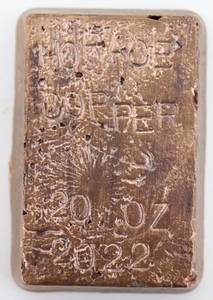 COPPER
20 OZ
2022